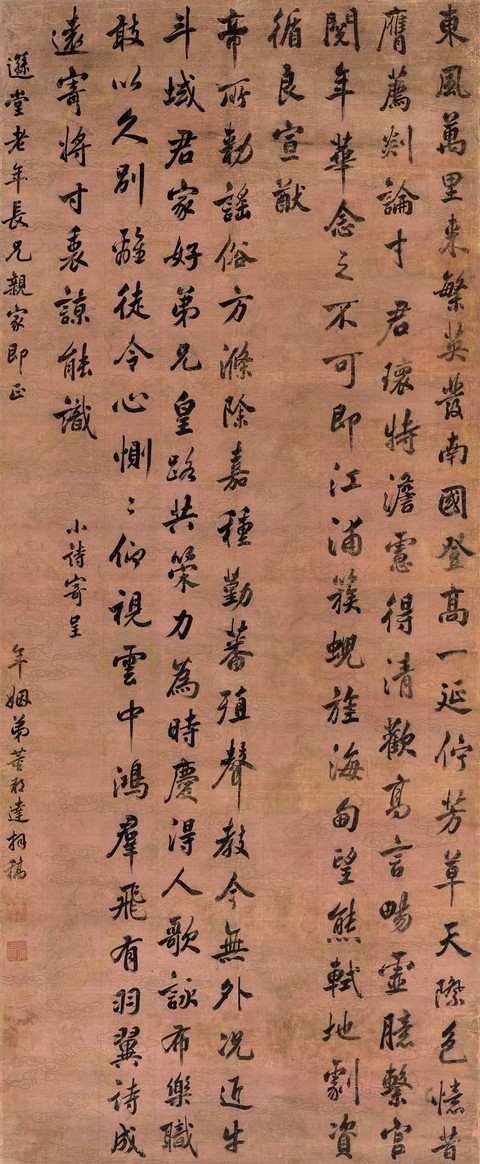 東風萬里來繁英發南國登高一延佇芳草天際色憶昔
膺薦剡論才君瓌特澹慮得清歡高言暢靈臆繫官
閱年華念之不可即江浦簇蜺旌海甸望熊軾地劇資
循良宣猷
帝所勑謠俗方滌除嘉種勤蕃殖聲教今無外況近牛
斗域君家好弟兄皇路共策力為時慶得人歌詠布樂職
敢以久別離徒令心惻〻仰視雲中鴻羣飛有羽翼詩成
遠寄將寸衷諒能識
小詩寄呈
遜堂老年長兄親家即正
年姻弟董邦達拜稿